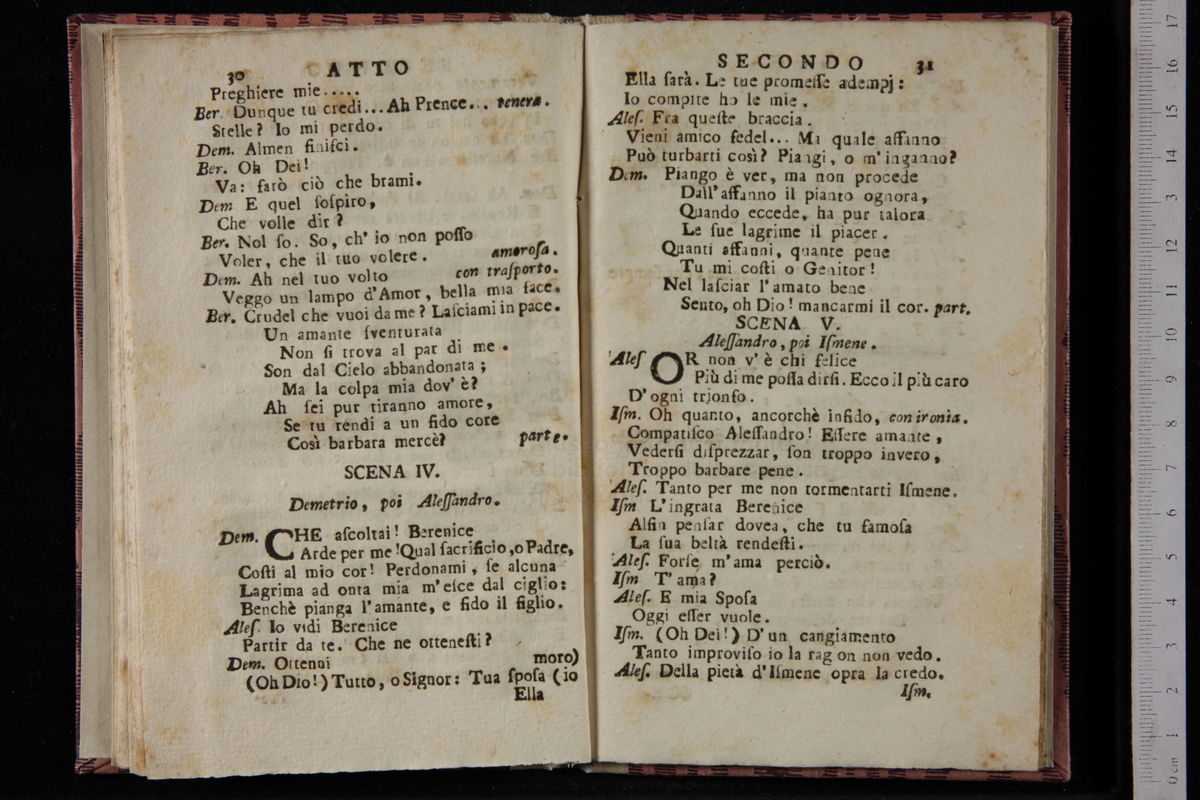 30 ATTO
Preghiere mie.....
Ber. Dunque tu credi... Ah Prence... tenera.
Stelle? Io mi perdo.
Dem. Almen finiſci.
Ber. Oh Dei!
Va: farò ciò che brami.
Dem E quel ſoſpiro,
Che volle dir?
Ber. Nol ſo. So, ch' io non poſſo
Voler, che il tuo volere. amoroſa.
Dem. Ah nel tuo volto con traſporto.
Veggo un lampo d'Amor, bella mia face.
Ber. Crudel che vuoi da me? Laſciami in pace.
Un amante ſventurata
Non ſi trova al par di me.
Son dal Cielo abbandonata;
Ma la colpa mia dov' è?
Ah ſei pur tiranno amore,
Se tu rendi a un fido core
Così barbara mercè? parte.
SCENA IV.
Demetrio, poi Aleſſandro.
Dem. CHE aſcoltai! Berenice
Arde per me! Qual ſacrificio, o Padre,
Coſti al mio cor! Perdonami, ſe alcuna
Lagrima ad onta mia m'eſce dal ciglio:
Benchè pianga l'amante, e fido il figlio.
Aleſ. Io vidi Berenice
Partir da te. Che ne otteneſti?
Dem. Ottenni moro)
(Oh Dio!) Tutto, o Signor: Tua ſpoſa (io
Ella
SECONDO 31
Ella ſarà. Le tue promeſſe adempj:
Io compite ho le mie.
Aleſ. Fra queſte braccia.
Vieni amico fedel... Ma quale affanno
Può turbarti così? Piangi, o m'inganno?
Dem. Piango è ver, ma non procede
Dall'affanno il pianto ognora,
Quando eccede, ha pur talora
Le ſue lagrime il piacer.
Quanti affanni, quante pene
Tu mi coſti o Genitor!
Nel laſciar l'amato bene
Sento, oh Dio! mancarmi il cor. part.
SCENA V.
Aleſſandro, poi Iſmene.
Aleſ OR non v' è chi felice
Più di me poſſa dirſi. Ecco il più caro
D' ogni trionfo.
Iſm. Oh quanto, ancorchè infido, con ironia.
Compatiſco Aleſſandro! Eſſere amante,
Vederſi diſprezzar, ſon troppo invero,
Troppo barbare pene.
Aleſ. Tanto per me non tormentarti Iſmene.
Iſm L'ingrata Berenice
Alfin penſar dovea, che tu famoſa
La ſua beltà rendeſti.
Aleſ. Forſe m'ama perciò.
Iſm T'ama?
Aleſ. E mia Spoſa
Oggi eſſer vuole.
Iſm. (Oh Dei!) D'un cangiamento
Tanto improviſo io la rag on non vedo.
Aleſ. Della pietà d'Iſmene opra la credo.
Iſm.
0 cm 1 2 3 4 5 6 7 8 9 10 11 12 13 14 15 16 17